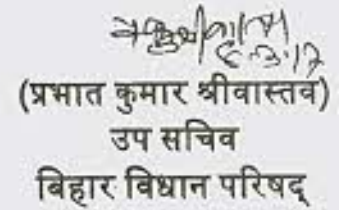 8.3.17
(प्रभात कुमार श्रीवास्तव)
उप सचिव
बिहार विधान परिषद्